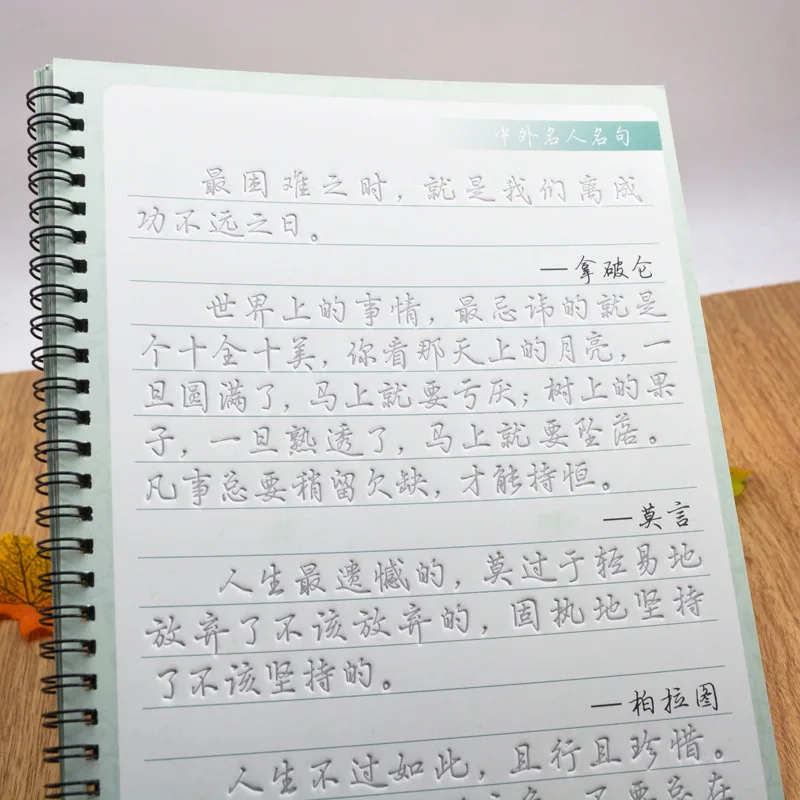 中外名人名句
最困难之时，就是我们离成
功不远之日。
—拿破仑
世界上的事情，最忌讳的就是
个十全十美，你看那天上的月亮，一
旦圆满了，马上就要亏厌；树上的果
子，一旦熟透了，马上就要坠落。
凡事总要稍留欠缺，才能持恒。
—莫言
人生最遗憾的，莫过于轻易地
放弃了不该放弃的，固执地坚持
了不该坚持的。
—柏拉图
人生不过如此，且行且珍惜。
不要总在